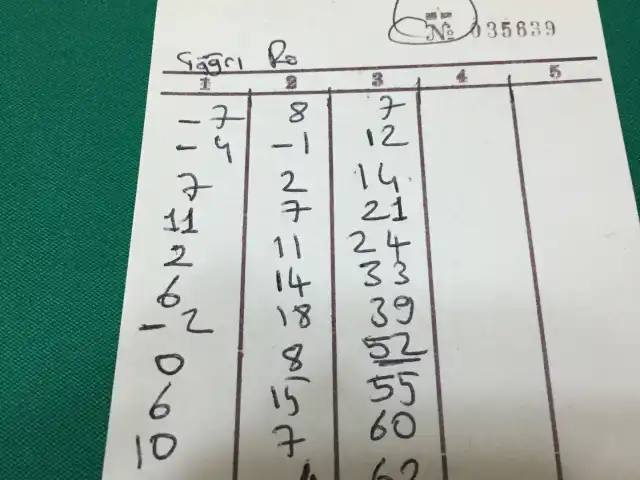 № 035639
Çağrı Ro
1 2 3 4 5
-7 8 7
-4 -1 12
7 2 14
11 7 21
2 11 24
6 14 33
-2 18 39
0 8 52
6 15 55
10 7 60